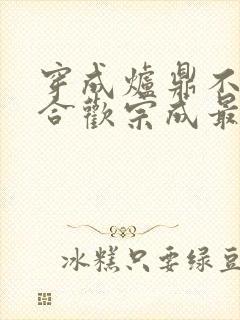 穿成爐鼎不
合歡宗成最
冰糕只要绿豆